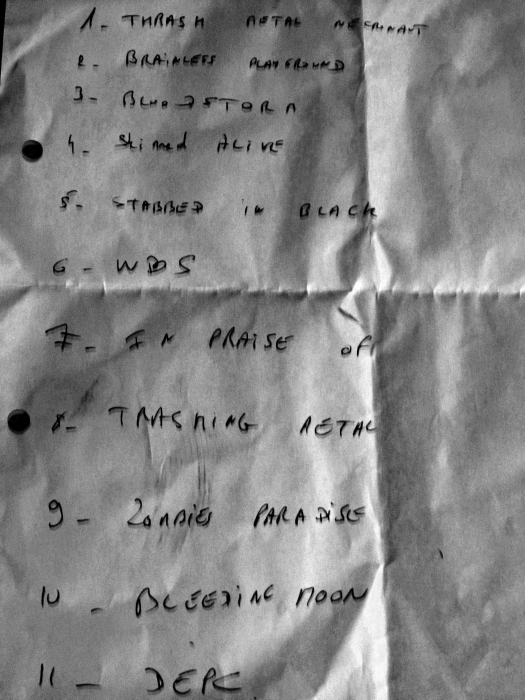 1- THRASH METAL
2- BRAINLESS PLAYGROUND
3- BLOODSTORM
4- Skined ALIVE
5- STABBED in BLACK
6- WDS
7- IN PRAISE of
8- TRASHING METAL
9- ZOMBIES PARADISE
10- BLEEDING MOON
11- DEPC